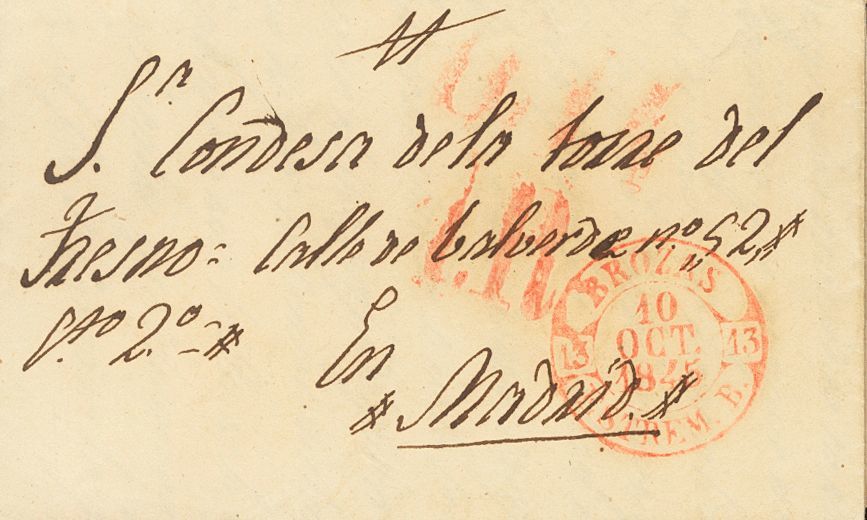 S.ra Condesa dela torre del
Fresno= Calle de Valverde n.o 52,,
q.to 2.o=
En
Madrid.
BROZAS
10
OCT.
1845
13 13
ESTREM. B.